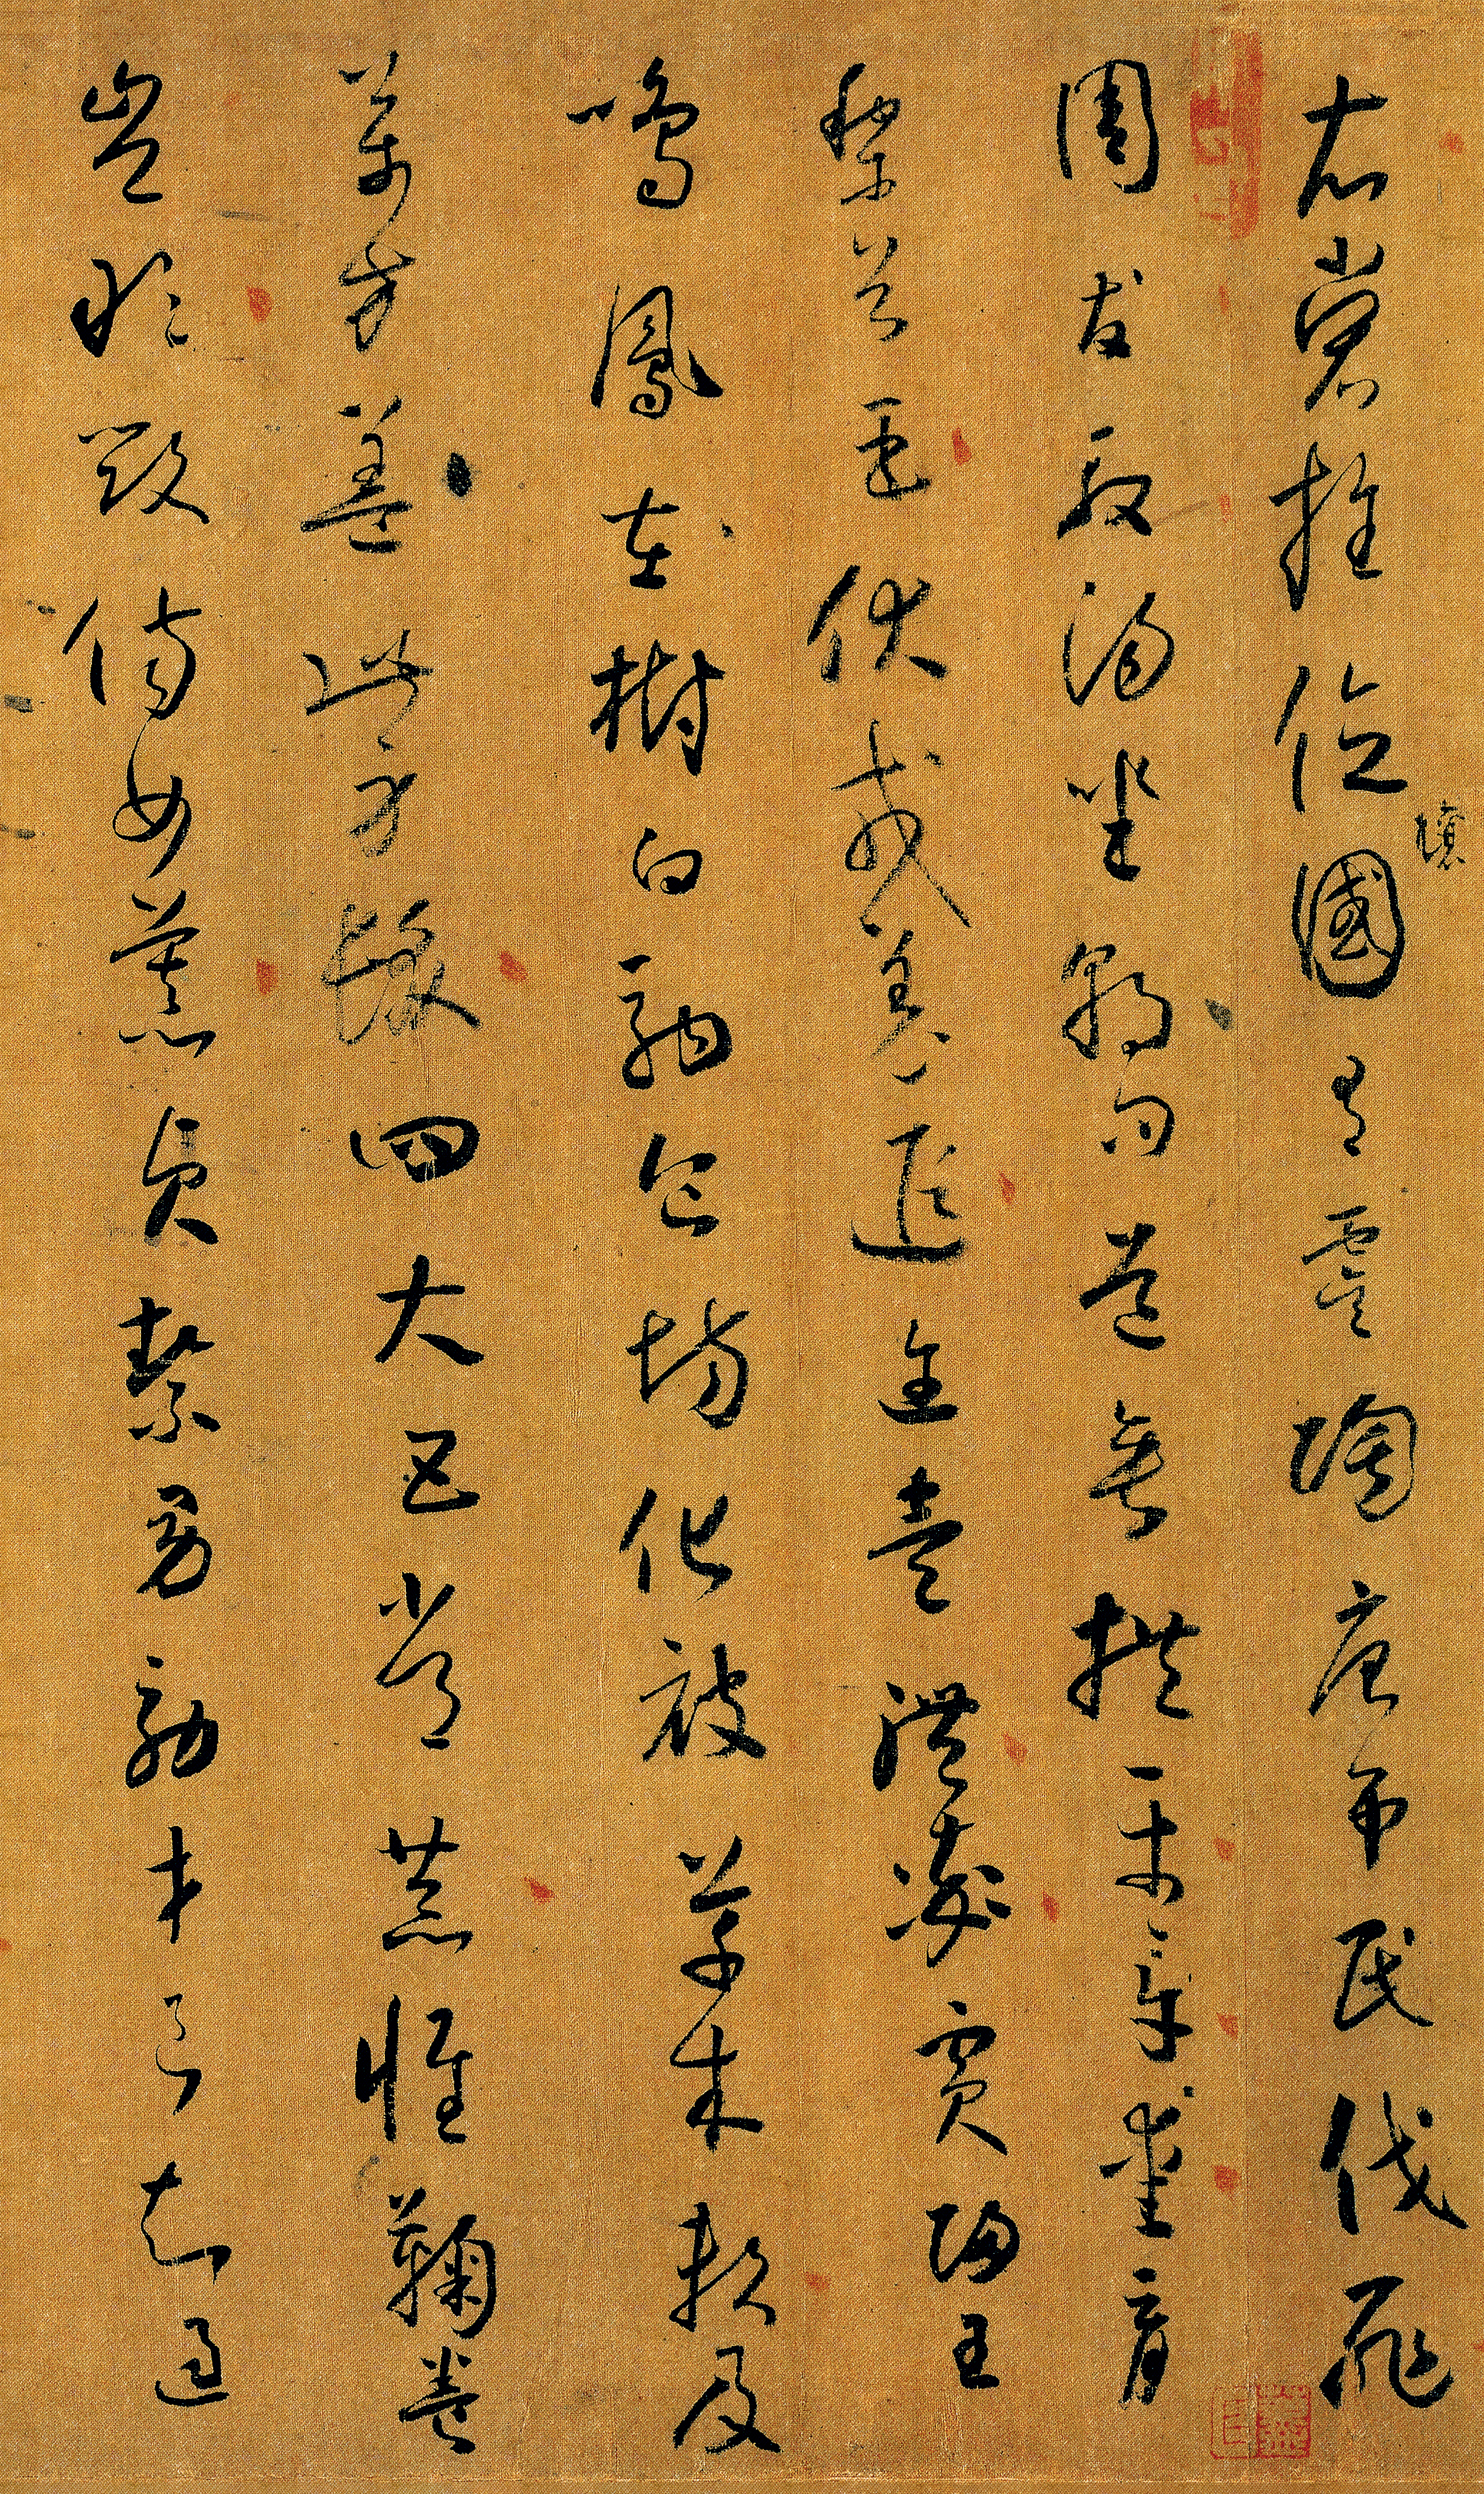 衣裳推位國有虞陶唐弔民伐罪
讓
周發殷湯坐朝問道垂拱平章愛育
黎首臣伏戎羌遐邇壹體率賓歸王
鳴鳳在樹白駒食場化被草木賴及
萬方蓋此身髮四大五常恭惟鞠養
豈敢毀傷女慕貞絜男効才良知過